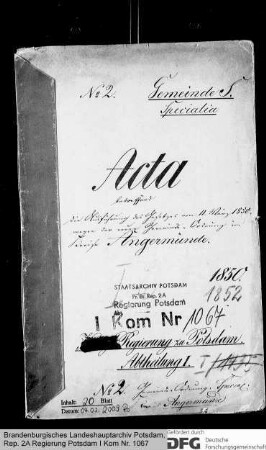 No 2. Gemeinde S.
Specialia
Acta
betreffend
die Ausführung des Gesetzes vom 11. März 1850,
wegen der neuen Gemeinde-Ordnung im
Kreise Angermünde.
1850
STAATSARCHIV POTSDAM
Pr. Br. Rep. 2 A
Regierung Potsdam
1852
I Kom Nr 1067
Regierung zu Potsdam.
Abtheilung I.
No 2.
Angermünde
Inhalt: 20 Blatt
Datum:
Brandenburgisches Landeshauptarchiv Potsdam,
Rep. 2A Regierung Potsdam I Kom Nr. 1067
Gefördert durch
DFG Deutsche
Forschungsgemeinschaft